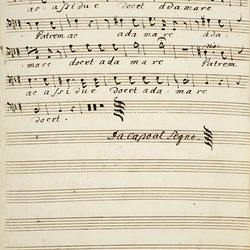 ac assidue docet adamare
Patrem ac adamare ada:
mare docet adamare Patrem
ac assidue docet ada: mare
docet.
Da capo al Segno.